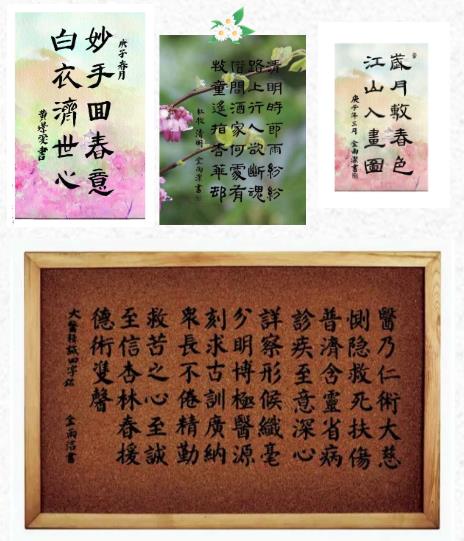 庚子春月
妙手回春意
白衣濟世心
書
清明時節雨紛紛
路上行人欲斷魂
借問酒家何處有
牧童遙指杏華邨
杜牧 清明 金雨潔書
歲月敷春色
江山入畫圖
庚子年三月 金雨潔書
醫乃仁術大慈
惻隐救死扶傷
普濟含靈省病
診疾至意深心
詳察形候纖毫
分明博極醫源
刻求古訓廣納
衆長不倦精勤
救苦之心至誠
至信杏林春援
德術雙馨
大醫精誠四字銘 金雨潔書